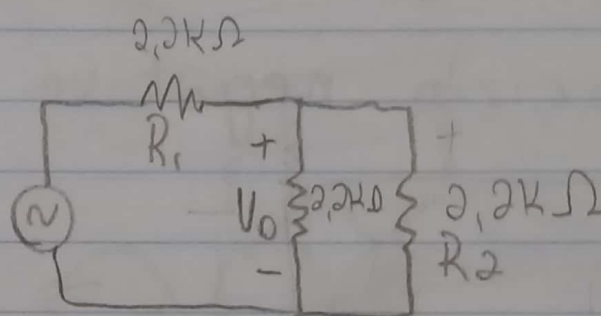 2,2KΩ
R1
+
+
V0
2,2KΩ
2,2KΩ
-
R2